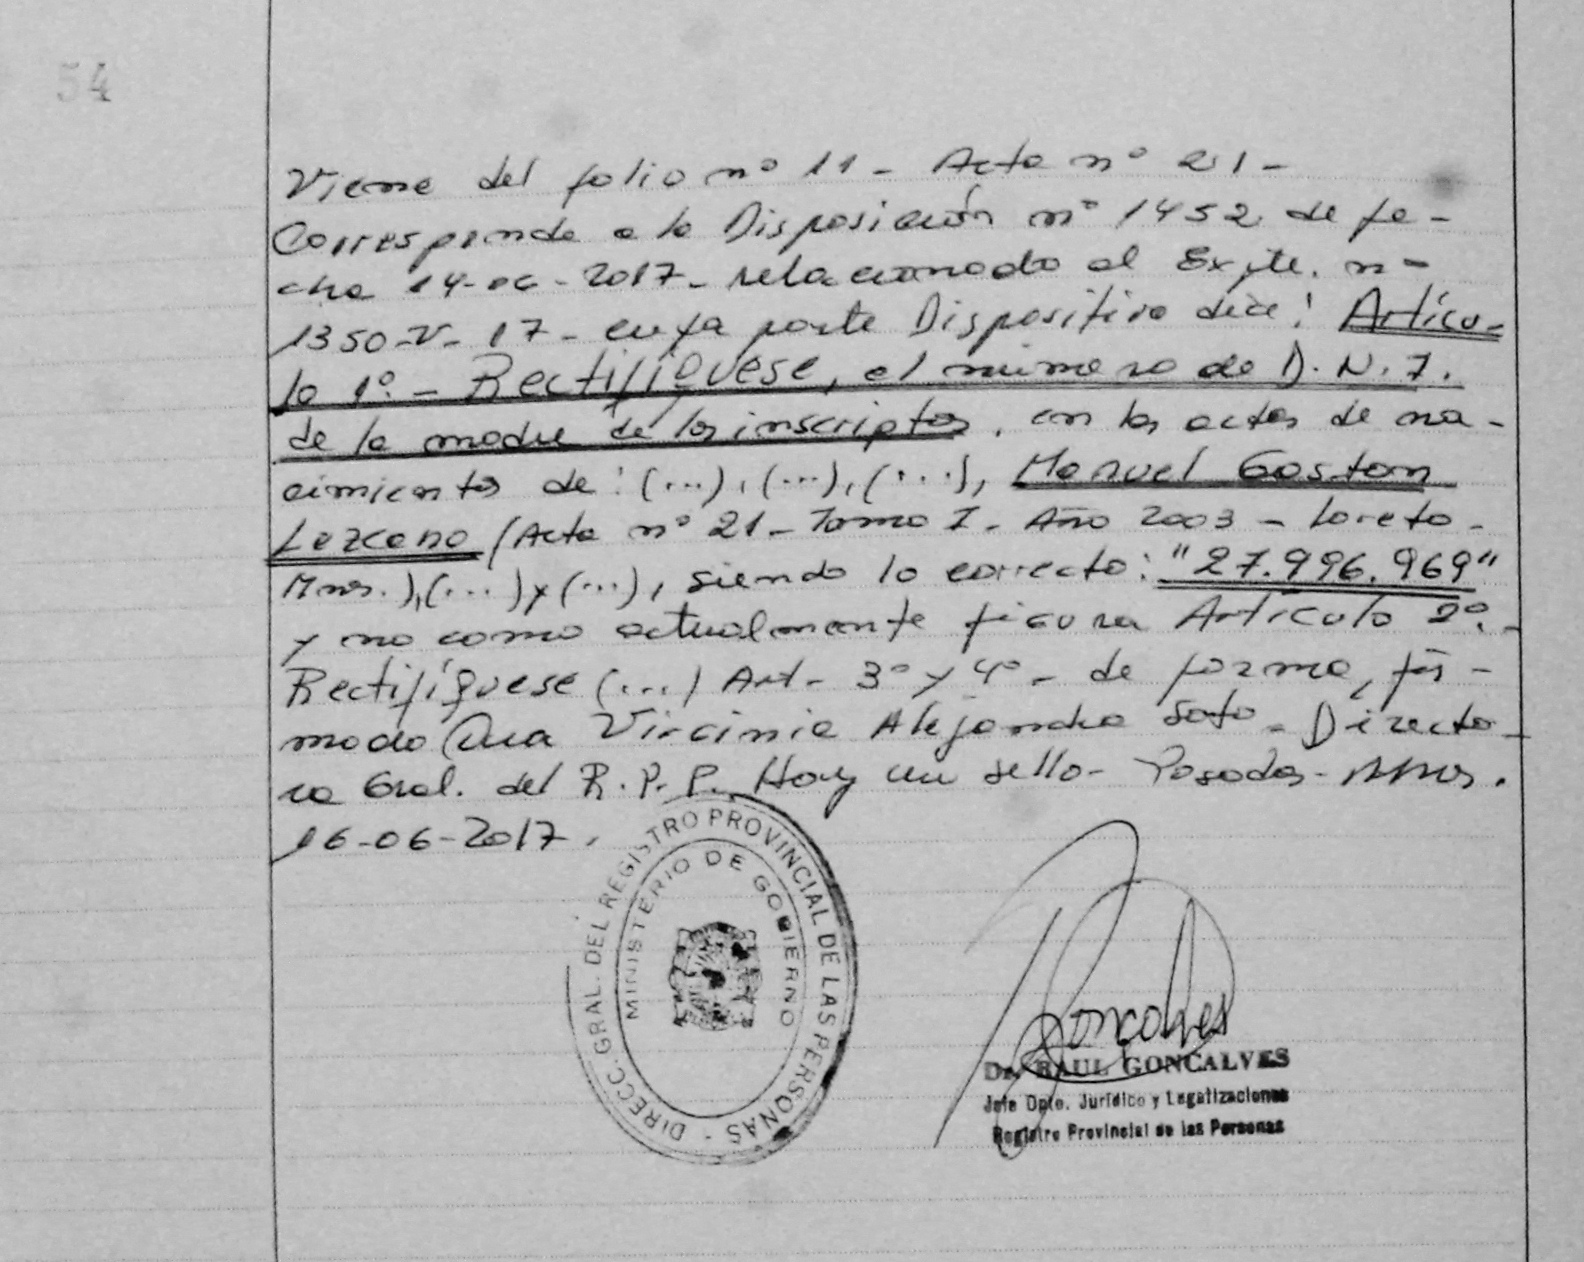 54
Viene del folio nº 11 - Acta nº 21 -
Corresponde a la Disposición nº 1452 de fe-
cha 14-06-2017- relacionado al Expte. nº
1350-V-17- cuya parte Dispositiva dice: Artícu-
lo 1º.- Rectifíquese, el número de D.N.I.
de la madre de los inscriptos, en las actas de na-
cimientos de: (...), (...), (...), Manuel Gaston
Lezcano (Acta nº 21 - Tomo I - Año 2003 - Loreto -
Mnes.), (...) y (...), siendo lo correcto: "27.996.969"
y no como actualmente figura Artículo 2º.-
Rectifíquese (...) Art- 3º y 4º - de forma, fir-
mado Dra Virginia Alejandra Soto - Directo-
ra Gral. del R.P.P. Hay un sello- Posadas- Mnes.
16-06-2017.
DIRECC. GRAL. DEL REGISTRO PROVINCIAL DE LAS PERSONAS -
MINISTERIO DE GOBIERNO
Goncalves
Dr. RAUL GONCALVES
Jefe Dpto. Jurídico y Legalizaciones
Registro Provincial de las Personas